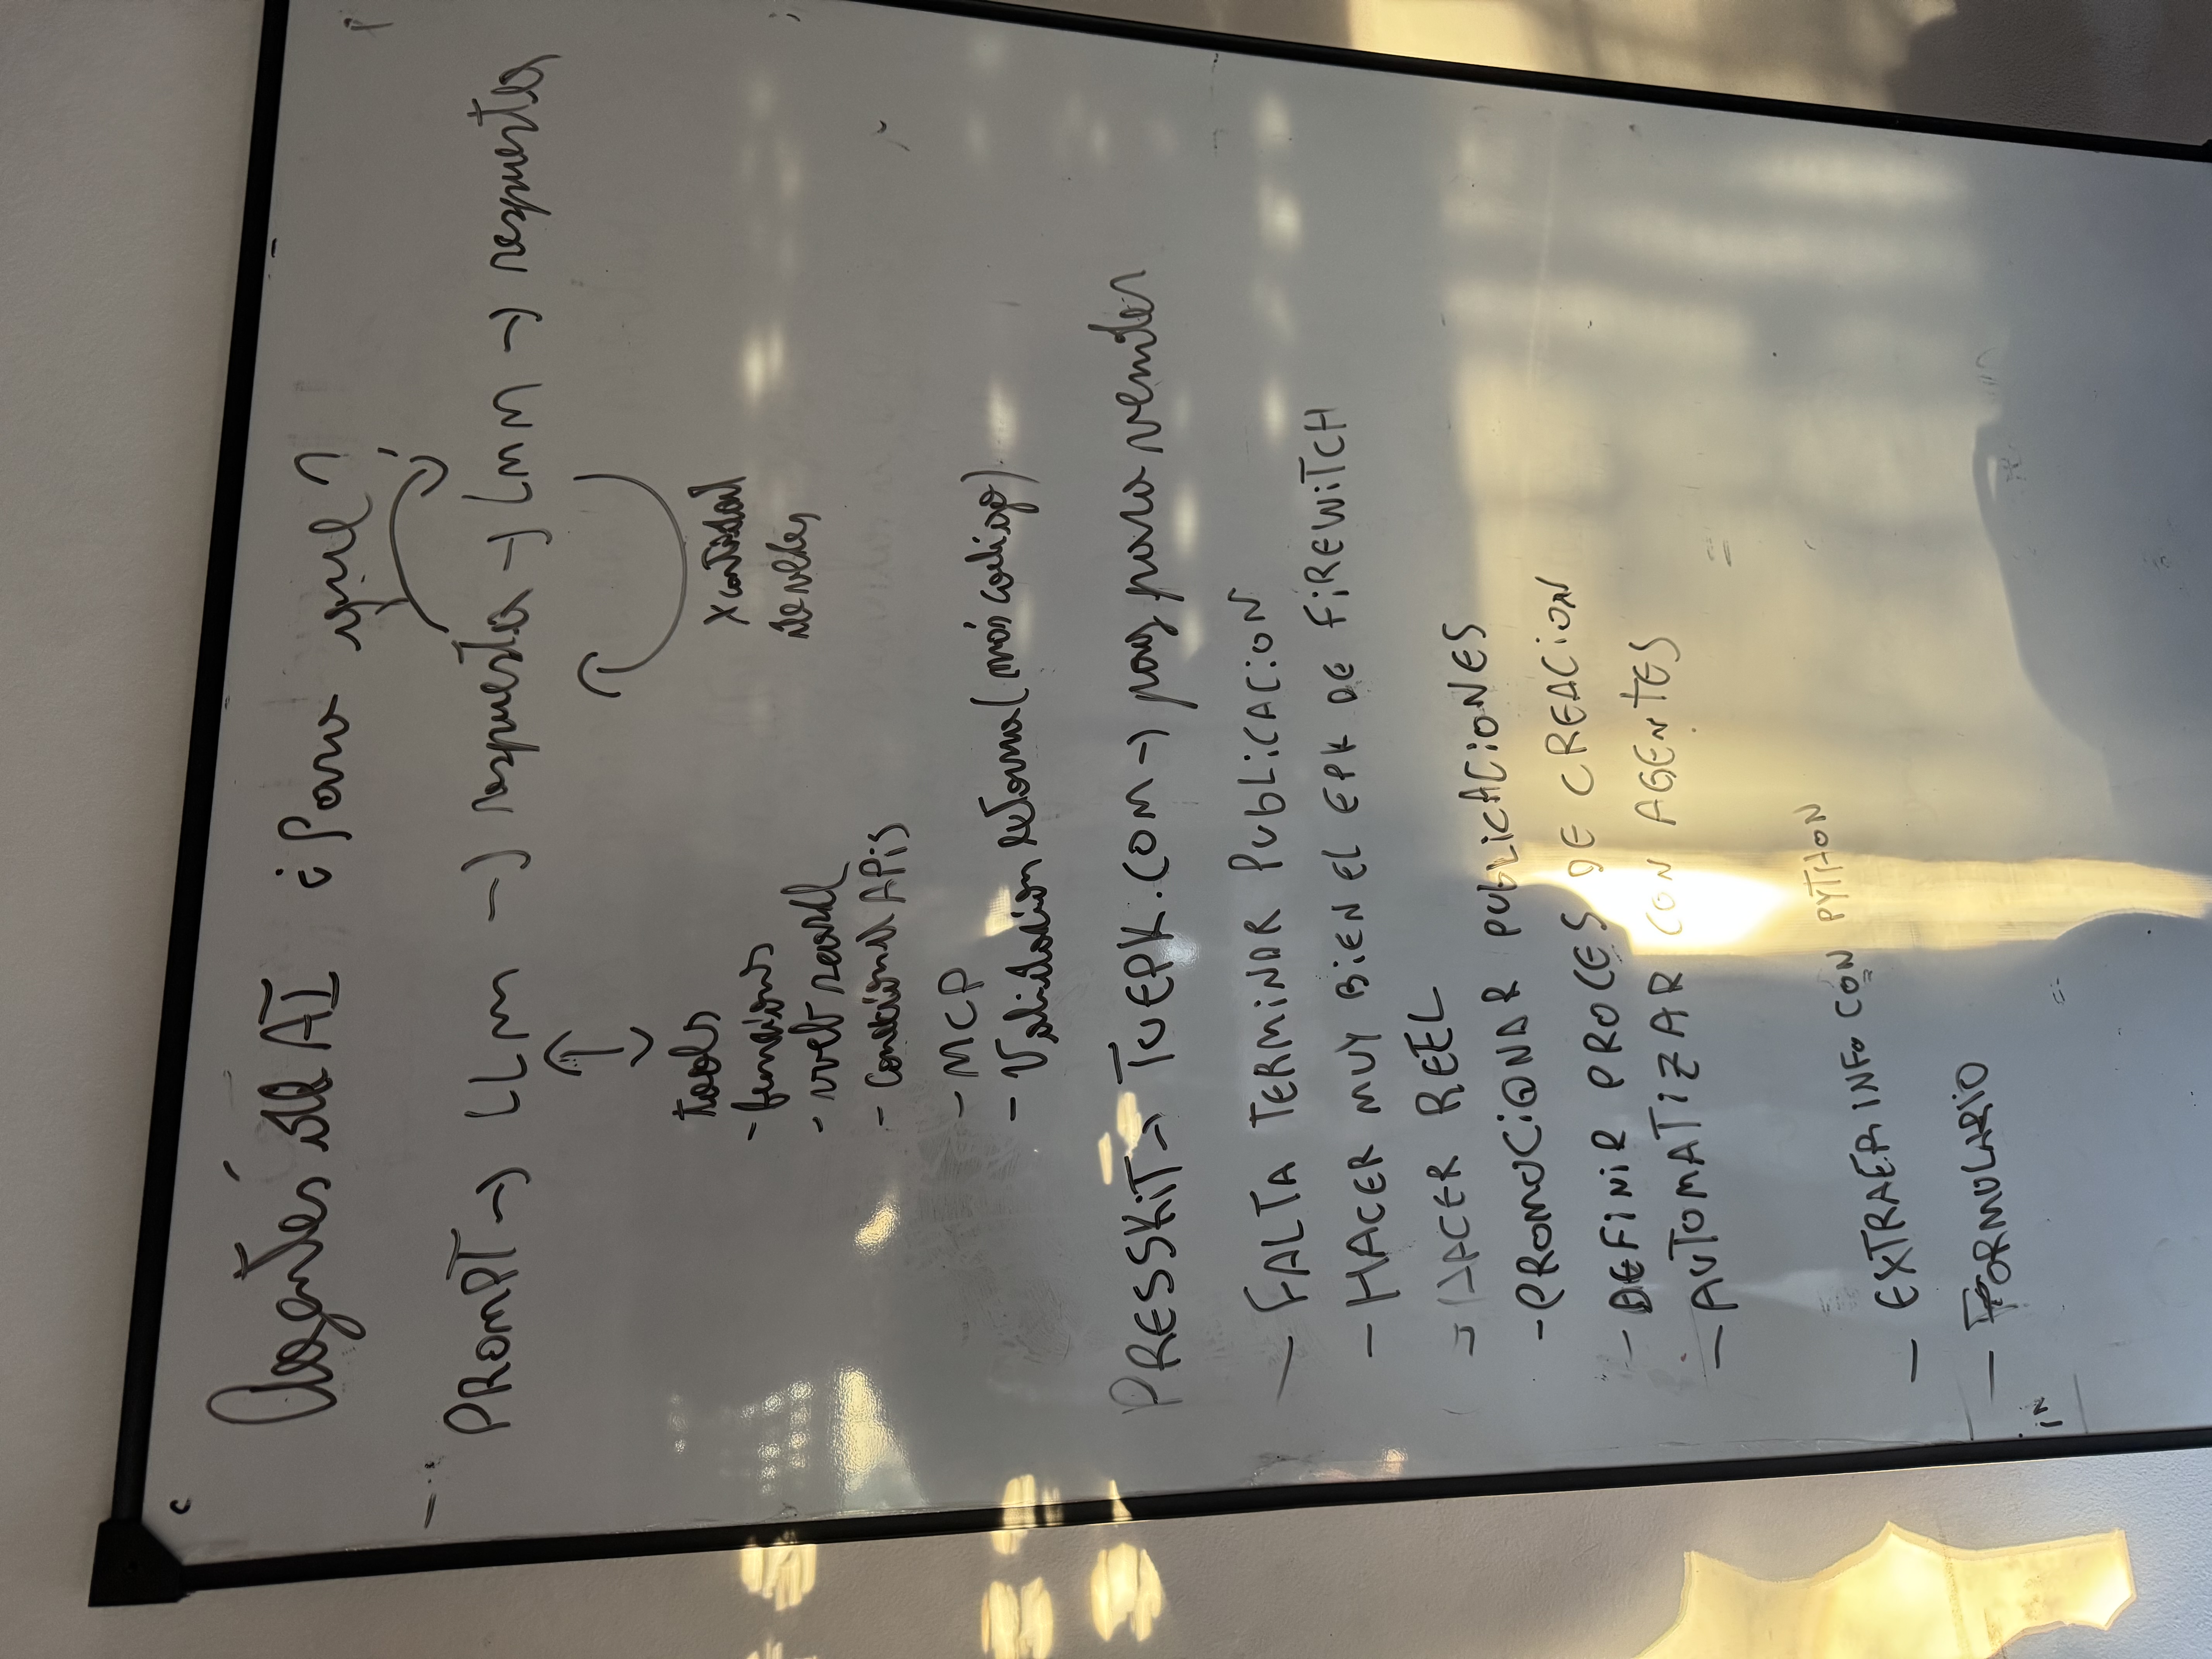 Agentes de AI ¿Para qué?
PROMPT → LLM → respuesta → LMM → respuesta
x cantidad
de veces
tools
- funcions
- web search
- conexions APIs
- MCP
- Validación retorna (más código)
PRESSKIT → TUEPK.COM → pag para vender
- FALTA TERMINAR PUBLICACION
- HACER MUY BIEN EL EPK DE FIREWITCH
- HACER REEL
- PROMOCIONAR PUBLICACIONES
- DEFINIR PROCES DE CREACION
- AUTOMATIZAR CON AGENTES
- EXTRAER INFO CON PYTHON
- FORMULARIO